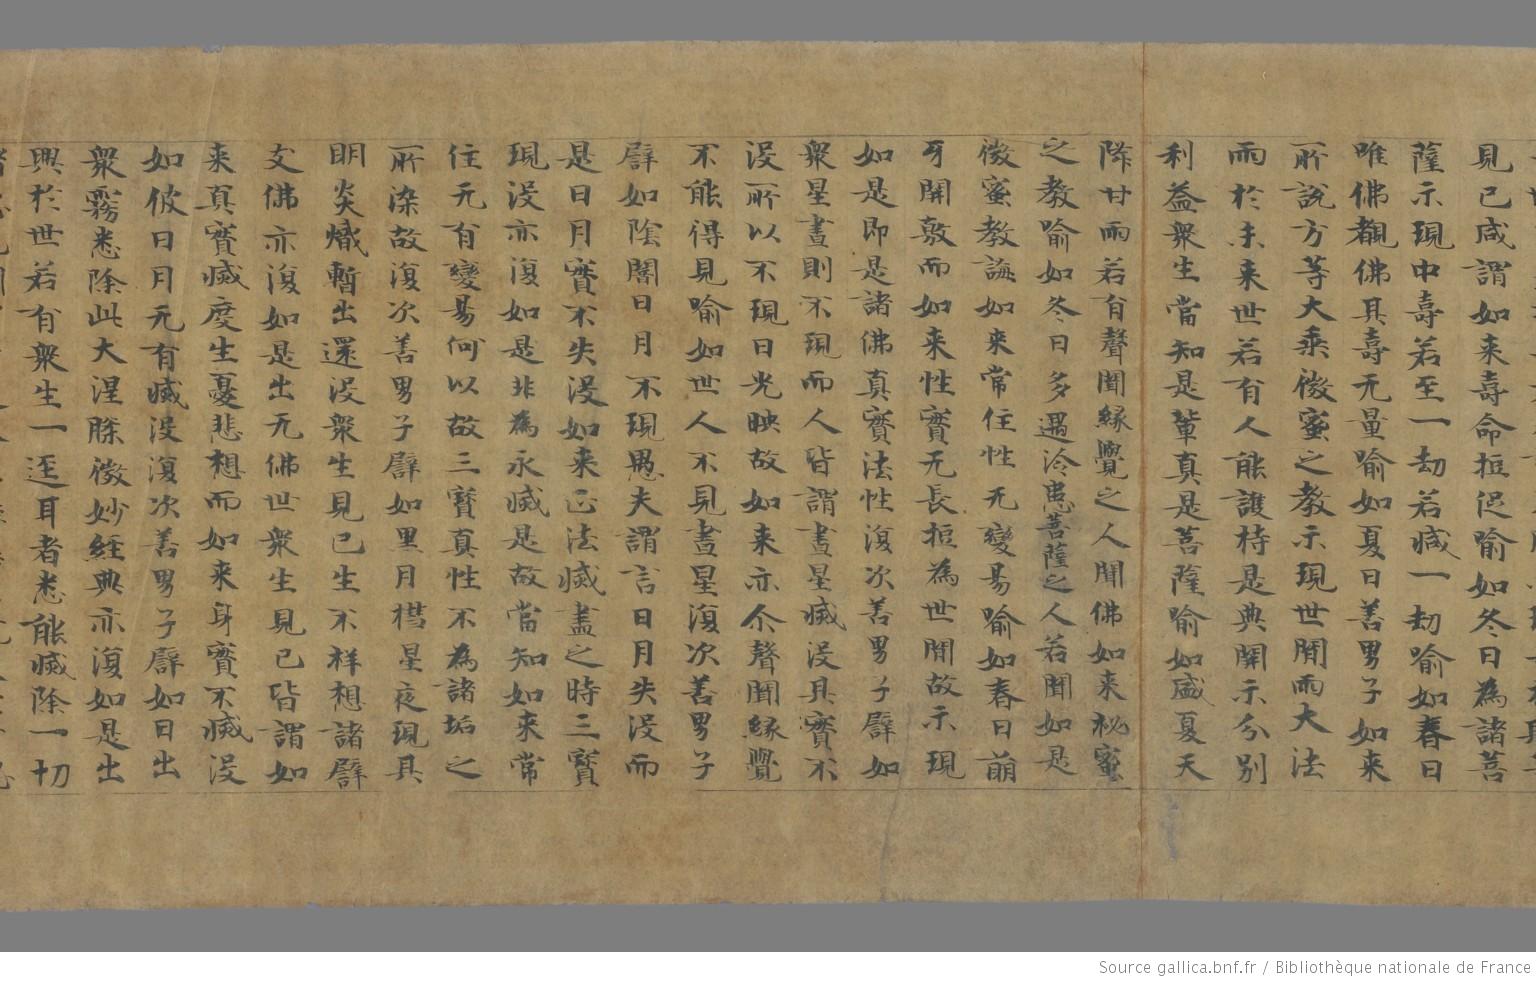 見已咸謂如来壽命㧢促喻如冬日為諸菩
薩示現中壽若至一劫若减一劫喻如春日
唯佛覩佛其壽无量喻如夏日善男子如来
所說方等大乘微蜜之教示現世間雨大法
雨於未来世若有人能護持是典開示分別
利益衆生當知是輩真是菩薩喻如盛夏天
降甘雨若有聲聞緣覺之人聞佛如来祕蜜
之教喻如冬日多遇冷患菩薩之人若聞如是
微蜜教誨如来常住性无變易喻如春日萠
牙開敷而如来性實无長㧢為世間故示現
如是即是諸佛真實法性復次善男子譬如
衆星晝則不現而人皆謂晝星滅没其實不
没所以不現日光映故如来亦尒聲聞緣覺
不能得見喻如世人不見晝星復次善男子
譬如陰闇日月不現愚夫謂言日月失没而
是日月實不失没如来正法滅盡之時三寳
現没亦復如是非為永滅是故當知如来常
住无有變易何以故三寳真性不為諸垢之
所染故復次善男子譬如黑月彗星夜現其
明炎熾暫出還没衆生見已生不祥想諸辟
支佛亦復如是出无佛世衆生見已皆謂如
来真實滅度生憂悲想而如来身實不滅没
如彼日月无有滅没復次善男子譬如日出
衆霧悉除此大涅槃微妙經典亦復如是出
興於世若有衆生一逕耳者悉能滅除一切